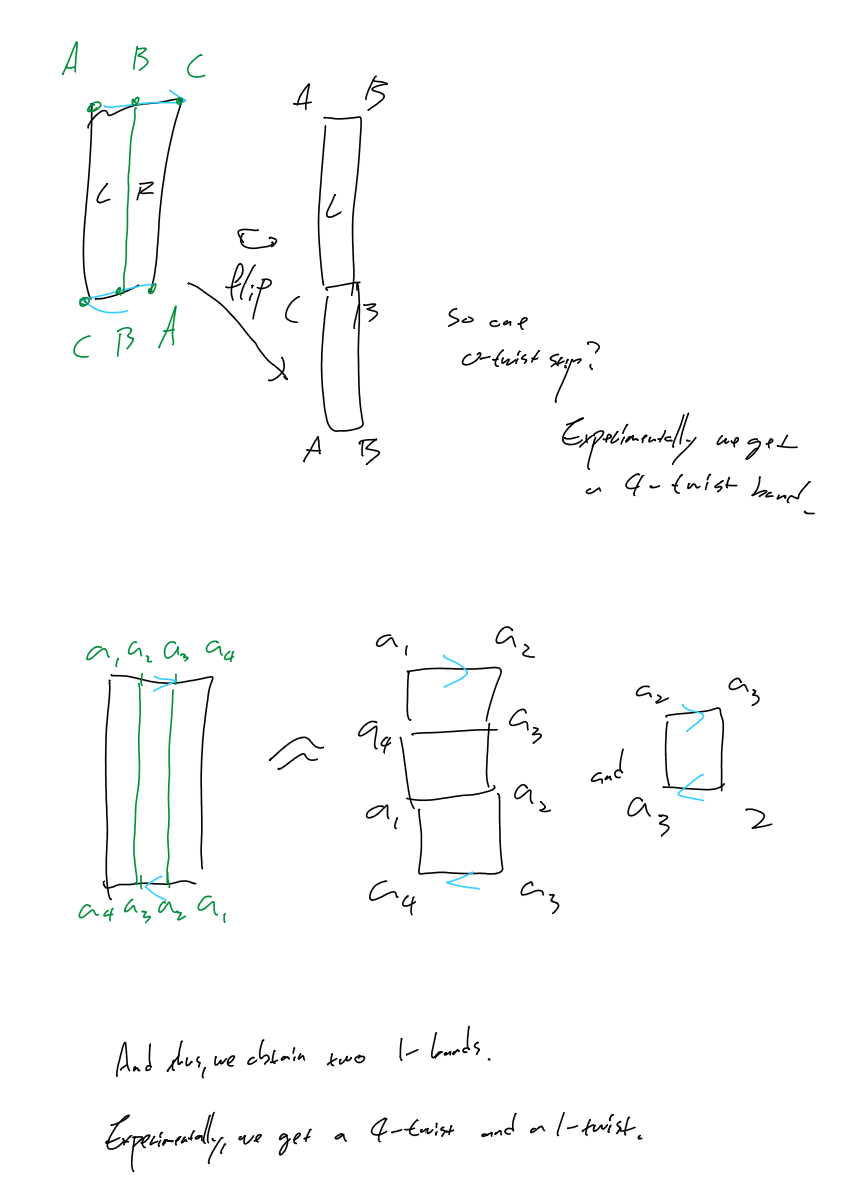 A B C
L R
C B A
flip
A B
L
C B
A B
So one
0-twist strip?
Experimentally we get
a 4-twist band.
a₁ a₂ a₃ a₄
a₄ a₃ a₂ a₁
≈
a₁ a₂
a₄ a₃
a₁ a₂
a₄ a₃
and
a₂ a₃
a₃ 2
And thus, we obtain two 1-bands.
Experimentally, we get a 4-twist and a 1-twist.